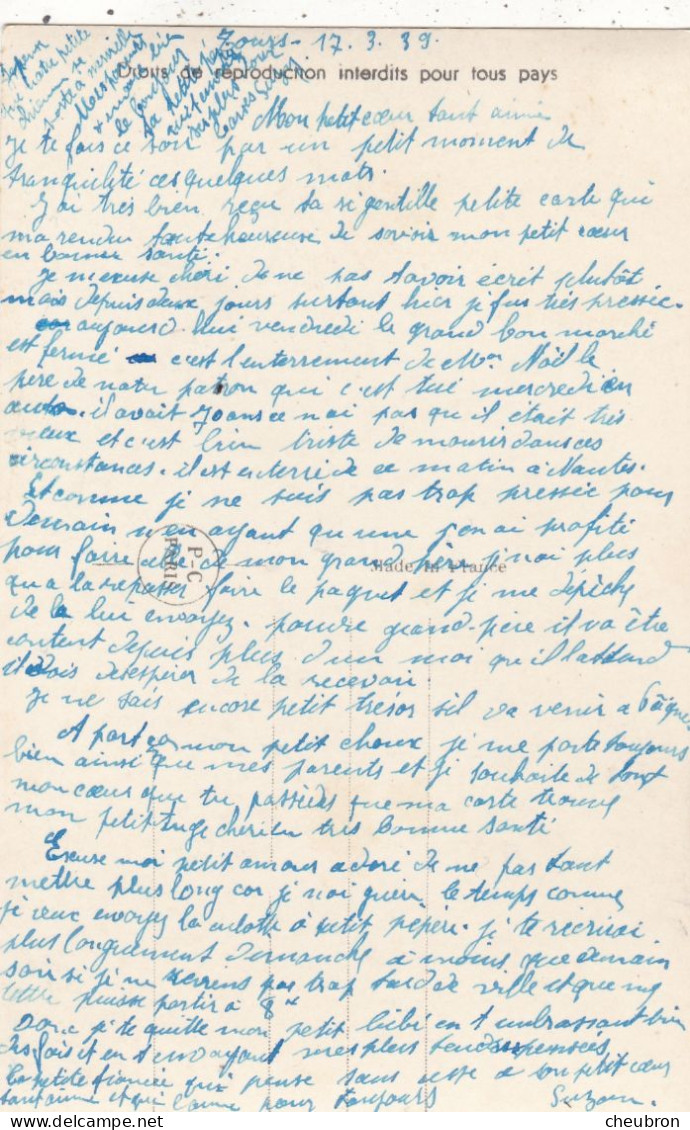 Tours - 17. 3. 39.
Droits de reproduction interdits pour tous pays
Mon petit cœur tant aimé
Je te fais ce soir par un petit moment de
tranquilité ces quelques mots.
J'ai très bien reçu ta si gentille petite carte qui
m'a rendu toute heureuse de savoir mon petit cœur
en bonne santé.
Je m'excuse chéri de ne pas t'avoir écrit plutôt
mais depuis deux jours surtout hier je fus très pressée.
aujourd'hui vendredi le grand bon marché
est fermé c'est l'enterrement de Mr Noël le
père de notre patron qui c'est tué mercredi en
auto. il avait 70 ans ce n'ai pas qu'il était très
vieux et c'est bien triste de mourir dans ces
circonstances. il est enterré de ce matin à Nantes.
Et comme je ne suis pas trop pressée pour
demain n'en ayant qu'une j'en ai profité
pour faire celle de mon grand père je n'ai plus
P-C
PARIS
Made in France
qu'a la repasser faire le paquet et je me dépêche
de la lui envoyez. pauvre grand-père il va être
content depuis plus d'un moi qu'il l'attend
il dois desespérer de la recevoir
Je ne sais encore petit trésor s'il va venir a Pâques
A part ça mon petit choux je me porte toujours
bien ainsi que mes parents et je souhaite de tout
mon cœur que tu possèdes que ma carte trouve
mon petit ange chéri en très bonne santé
Excuse moi petit amour adoré de ne pas tant
mettre plus long car je n'ai guère le temps comme
je veux envoyez la culotte à petit pépère. je te récrirai
plus longuement dimanche à moins que demain
soir si je ne reviens pas trop tard de ville et que ma
lettre puisse partir à 8h
Donc je te quitte mon petit bébé en t'embrassant bien
des fois et en t'envoyant mes plus tendres pensées
Ta petite fiancée qui pense sans cesse a son petit cœur
tant aimé et qui l'aime pour toujours Suzon.
cheubron.com